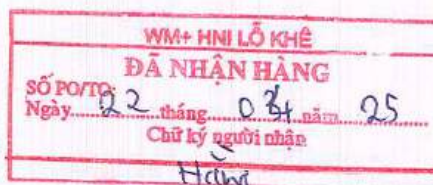 WM+ HNI LỖ KHÊ
ĐÃ NHẬN HÀNG
SỐ PO/TO:
Ngày 22 tháng 04 năm 25
Chữ ký người nhận
Hằng